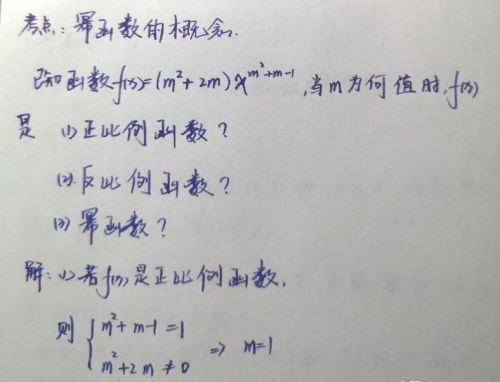 考点：幂函数的概念.
已知函数f(x)=(m²+2m)x^{m²+m-1}，当m为何值时，f(x)
是 (1)正比例函数？
(2)反比例函数？
(3)幂函数？
解：(1)若f(x)是正比例函数，
则 { m²+m-1=1
m²+2m≠0 => m=1